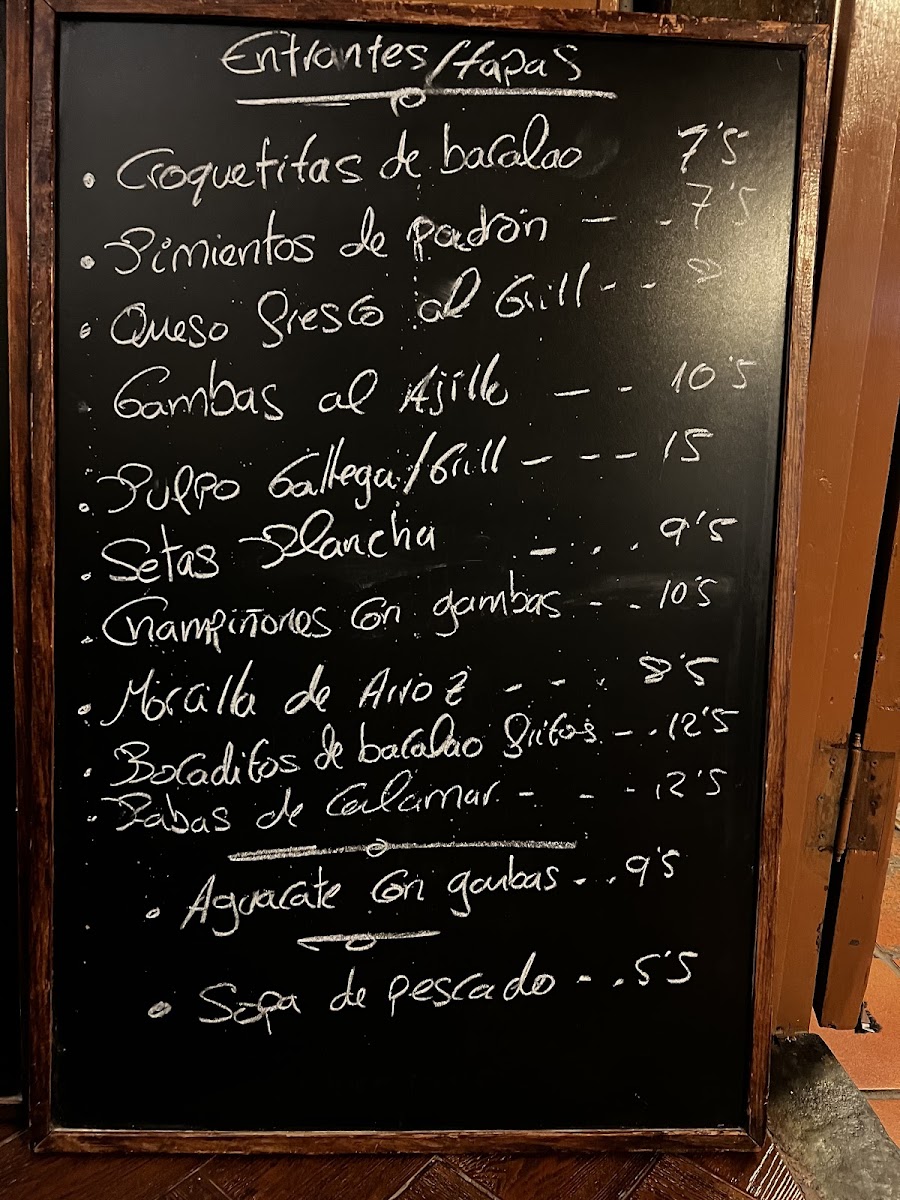 Entrantes/tapas
• Croquetitas de bacalao 7'5
• Pimientos de padrón - . 7'5
• Queso fresco al Grill - - 8
• Gambas al Ajillo - - 10'5
• Pulpo Gallega/Grill - - - 15
• Setas Plancha - . . . 9'5
• Champiñones con gambas - - 10'5
• Morcilla de Arroz - - . 8'5
• Bocaditos de bacalao fritos - . 12'5
• Rabas de Calamar - - - 12'5
• Aguacate con gambas - . . 9'5
• Sopa de pescado - . 5'5